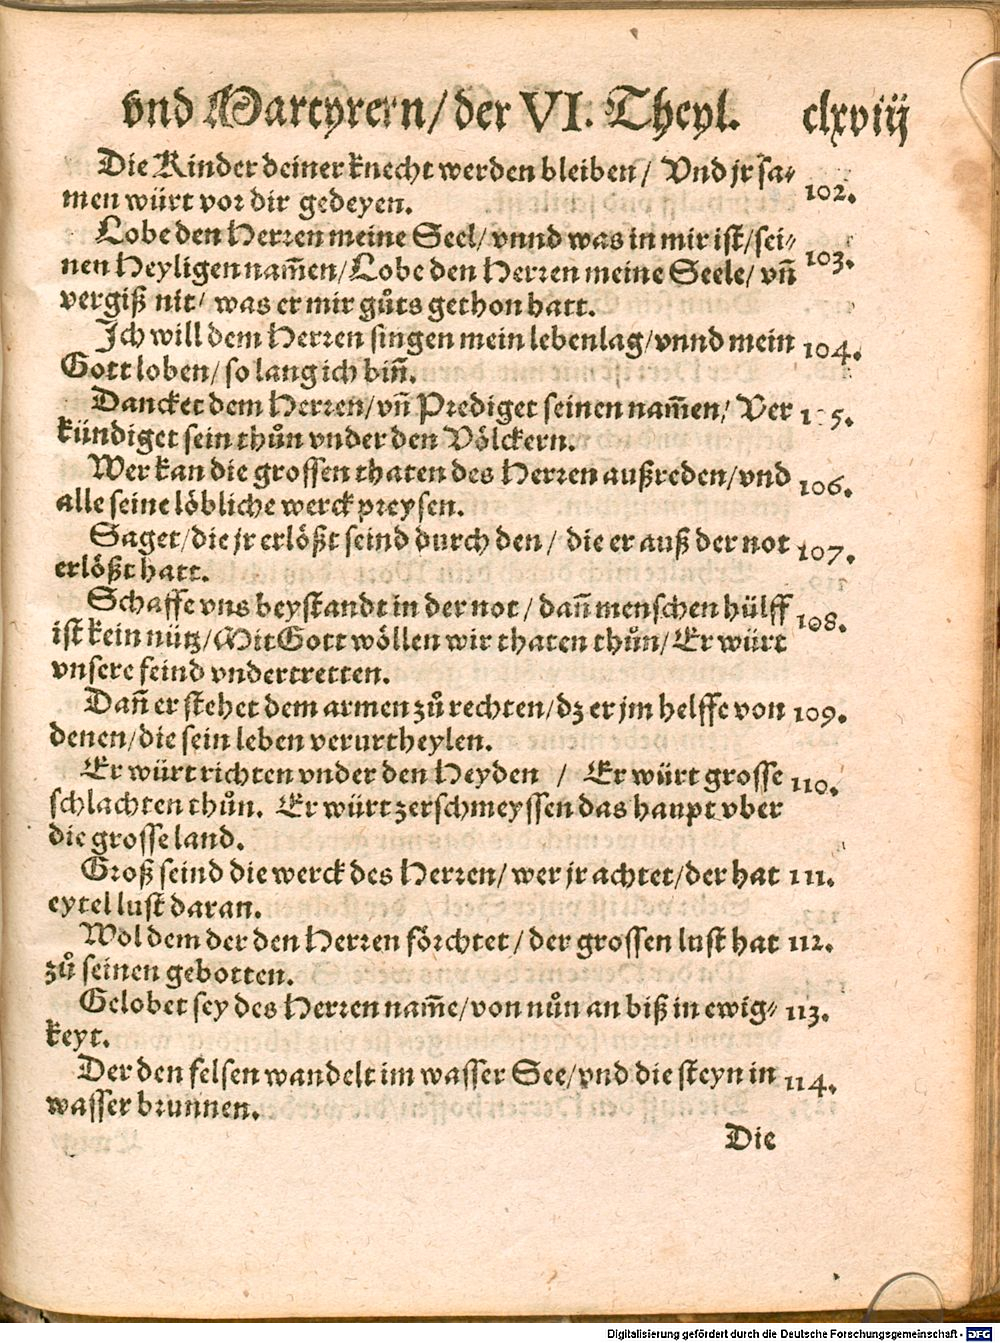 vnd Martyrern/ der VI. Theyl. clxviij
Die Kinder deiner knecht werden bleiben/ Vnd jr sa- 102.
men würt vor dir gedeyen.
Lobe den Herren meine Seel/ vnnd was in mir ist/ sei- 103.
nen Heyligen nam̄en/ Lobe den Herren meine Seele/ vn̄
vergiß nit/ was er mir gůts gethon hatt.
Ich will dem Herren singen mein lebenlag/ vnnd mein 104.
Gott loben/ so lang ich bin̄.
Dancket dem Herren/ vn̄ Prediget seinen nam̄en/ Ver 105.
kündiget sein thůn vnder den Völckern.
Wer kan die grossen thaten des Herren außreden/ vnd 106.
alle seine löbliche werck preysen.
Saget/ die jr erlößt seind durch den/ die er auß der not 107.
erlößt hatt.
Schaffe vns beystandt in der not/ dan̄ menschen hülff 108.
ist kein nütz/ Mit Gott wöllen wir thaten thůn/ Er würt
vnsere feind vndertretten.
Dan̄ er stehet dem armen zů rechten/ dz er jm helffe von 109.
denen/ die sein leben verurtheylen.
Er würt richten vnder den Heyden / Er würt grosse 110.
schlachten thůn. Er würt zerschmeyssen das haupt vber
die grosse land.
Groß seind die werck des Herren/ wer jr achtet/ der hat 111.
eytel lust daran.
Wol dem der den Herren förchtet/ der grossen lust hat 112.
zů seinen gebotten.
Gelobet sey des Herren nam̄e/ von nůn an biß in ewig- 113.
keyt.
Der den felsen wandelt im wasser See/ vnd die steyn in 114.
wasser brunnen.
Die
Digitalisierung gefördert durch die Deutsche Forschungsgemeinschaft - DFG